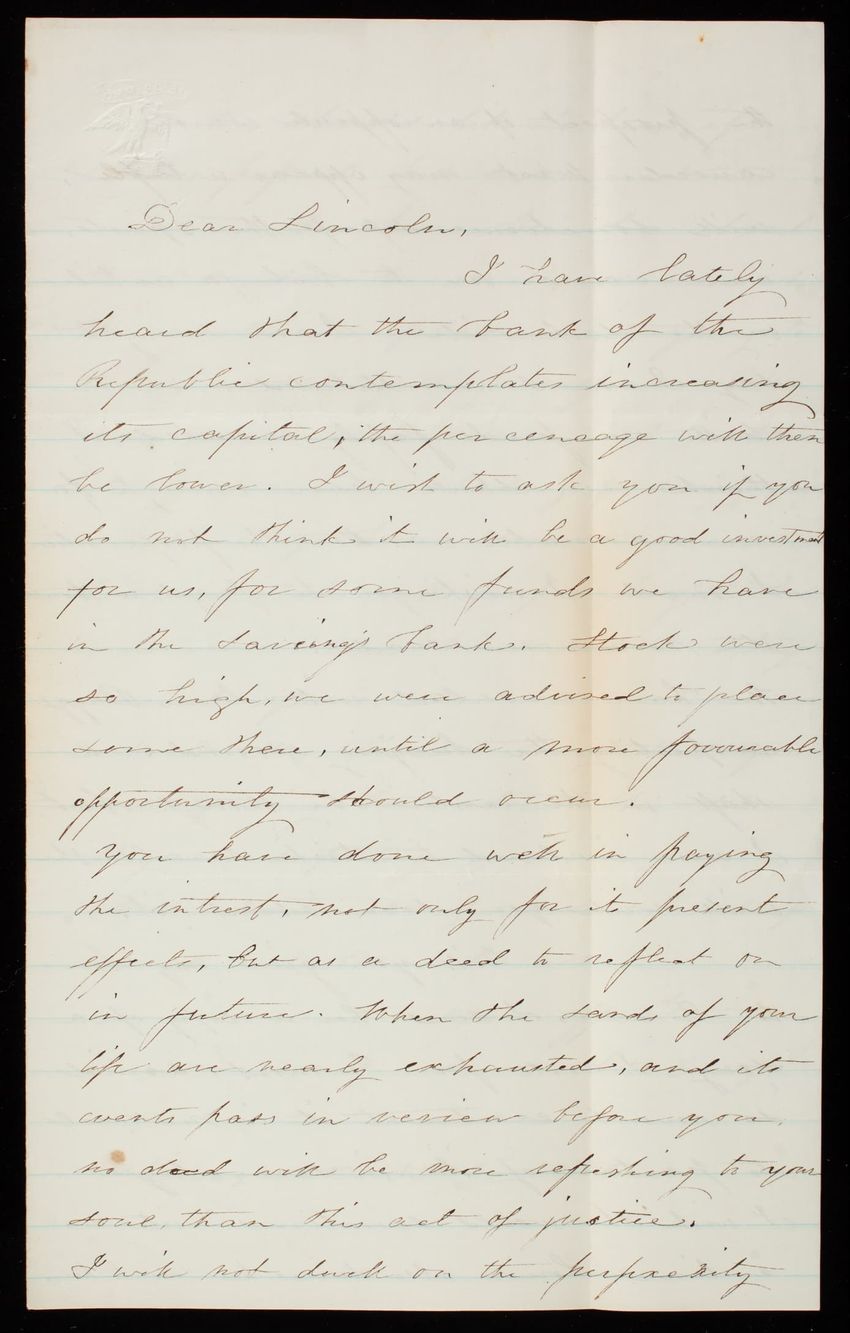 Dear Lincoln,
I have lately
heard that the bank of the
Republic contemplates increasing
its capital; the per cencage will then
be lower. I wish to ask you if you
do not think it will be a good investment
for us, for some funds we have
in the saveings bank. Stock were
so high, we were advised to place
some there, until a more favourable
opportunity should occur.
You have done well in paying
the intrest, not only for its present
effects, but as a deed to reflect on
in future. When the sands of your
life are nearly exhausted, and its
events pass in review before you,
no deed will be more refreshing to your
soul, than this act of justice.
I will not dwell on the perpxexity